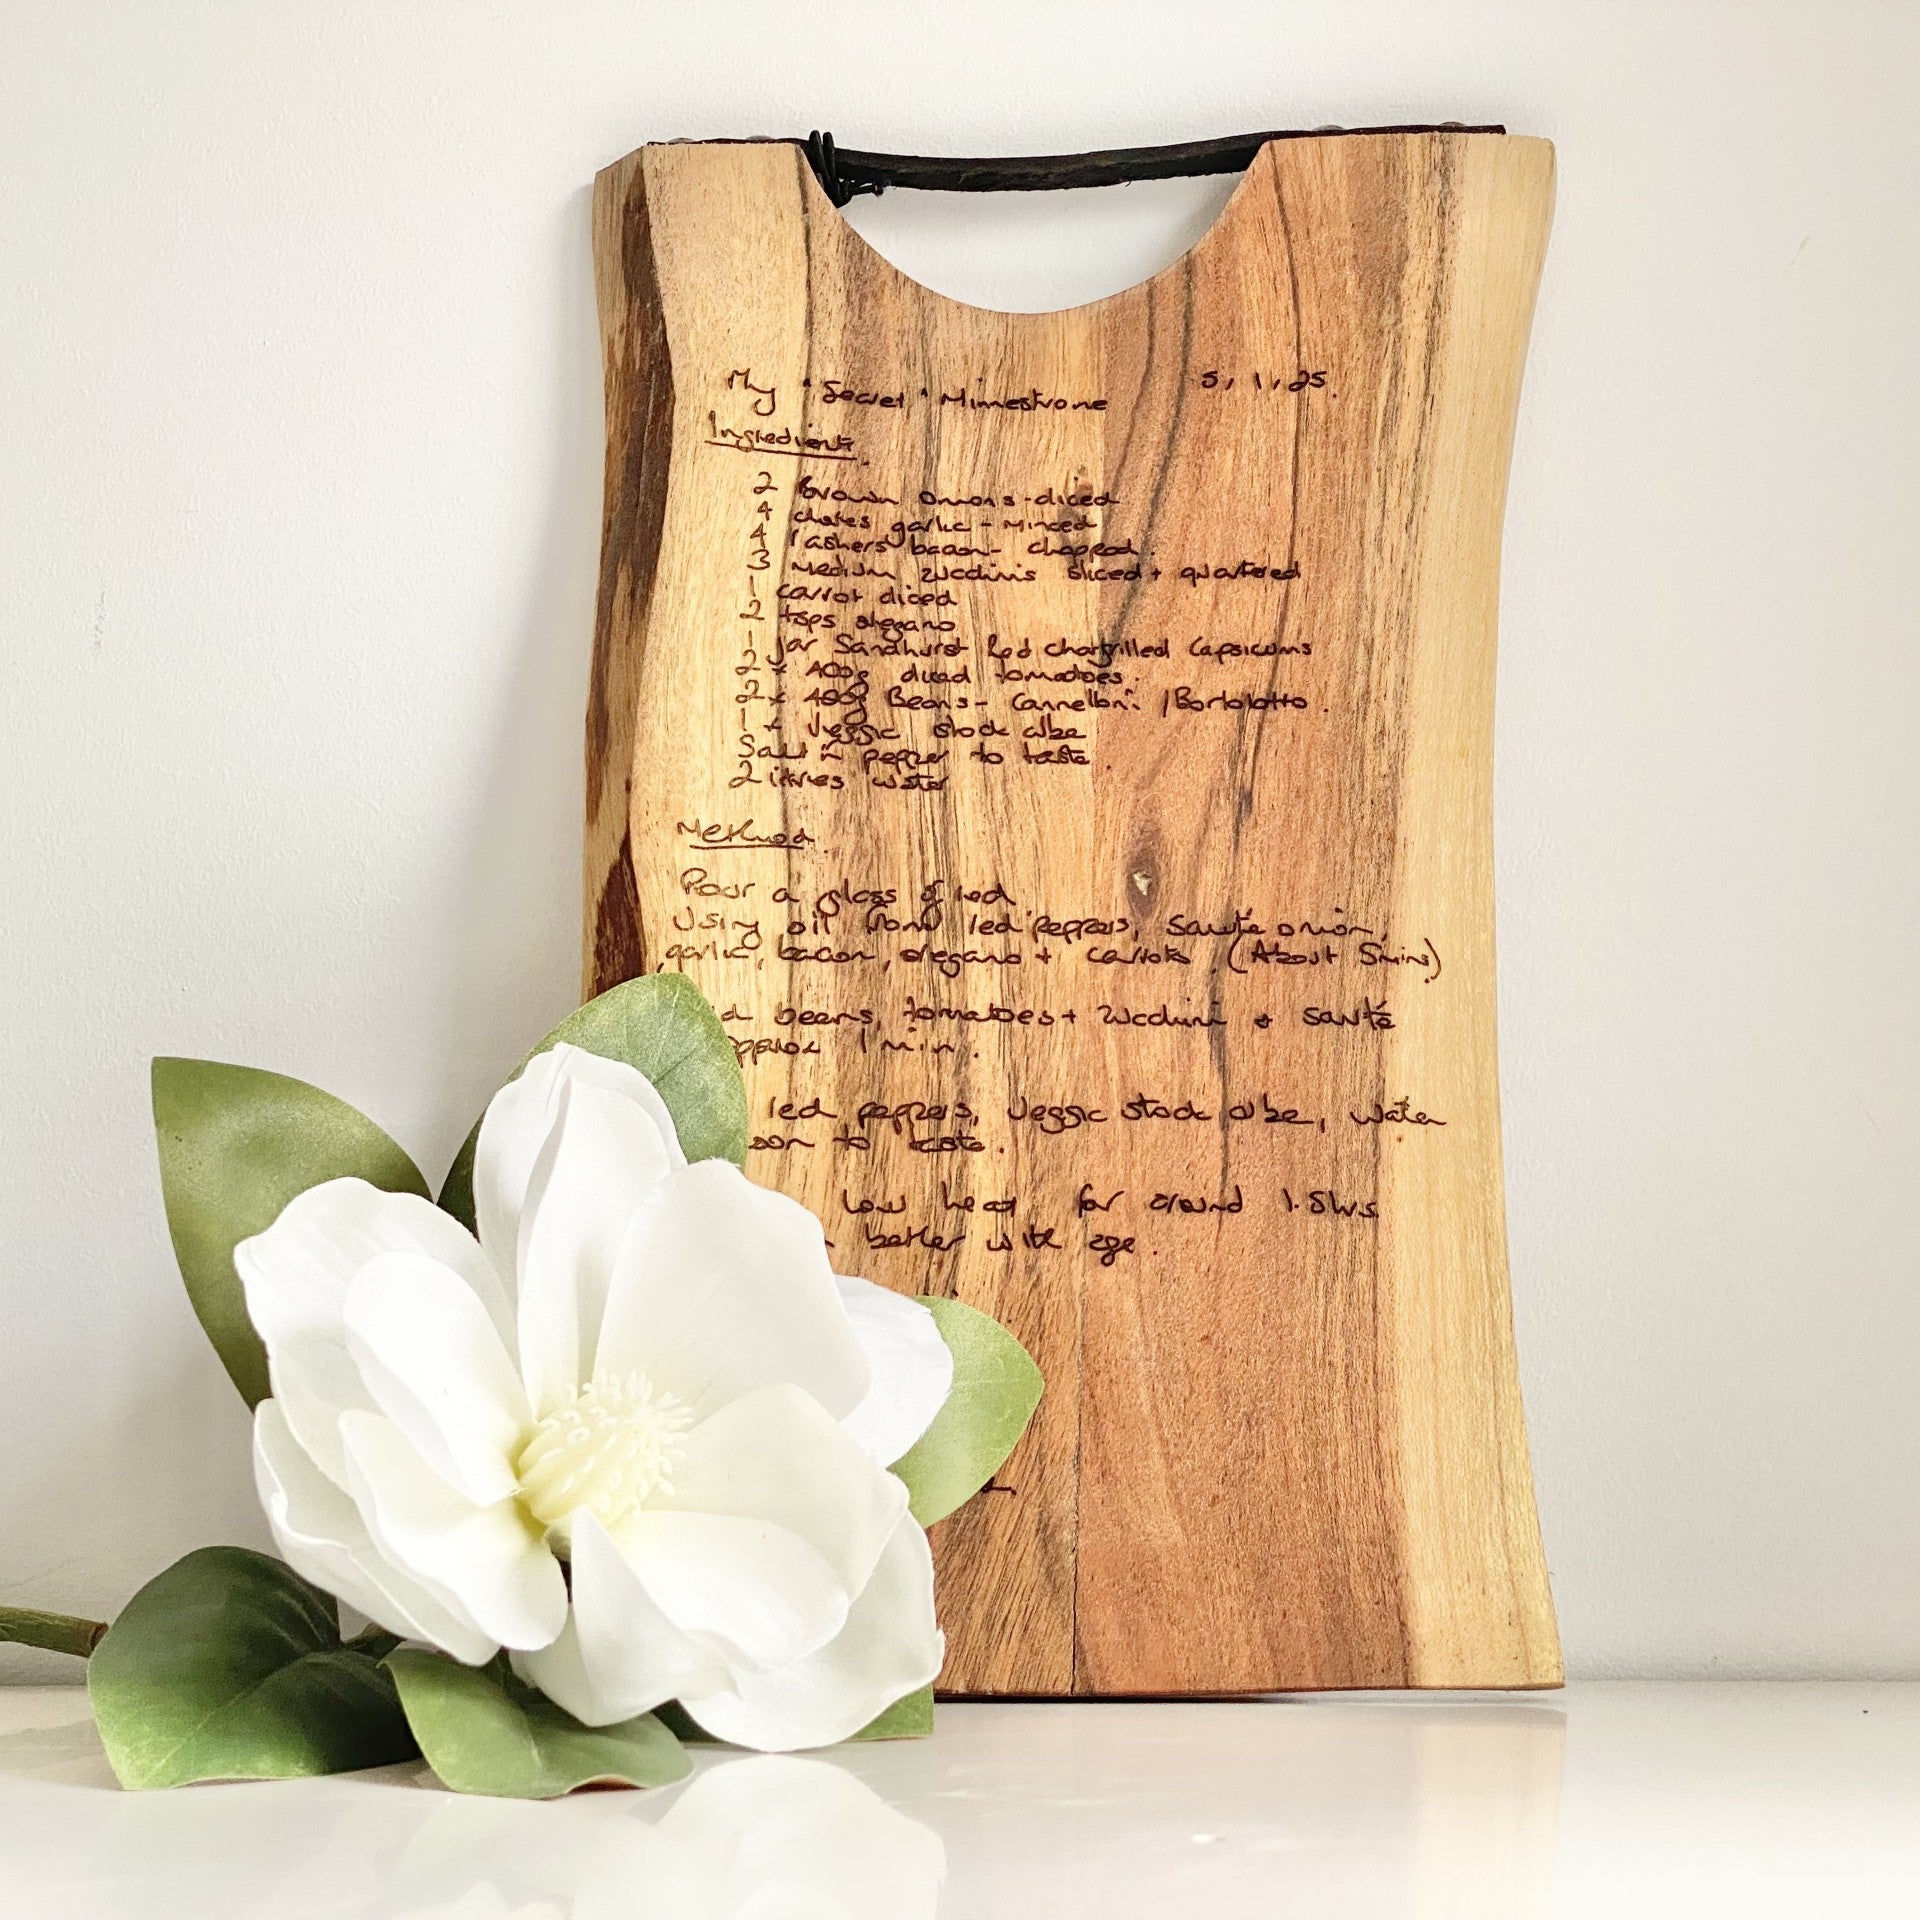 My 'Secret' Minestrone 5/1/25.
Ingredients.
2 Brown Onions - diced
4 cloves garlic - minced
4 rashers bacon - chopped.
3 Medium zucchinis sliced + quartered
1 carrot diced
2 tsps oregano
1 jar Sandhurst Red Chargrilled Capsicums
2 x 400g diced tomatoes.
2 x 400g Beans - Cannellini / Bortolotto.
1 x Veggie stock cube
Salt n pepper to taste.
2 litres water
Method.
Pour a glass of red
Using oil from red peppers, sauté onion,
garlic, bacon, oregano + carrots. (About 5mins)
beans, tomatoes + zucchini + sauté
approx 1 min.
red peppers, veggie stock cube, water
to taste.
low heat for around 1.5hrs.
better with age.